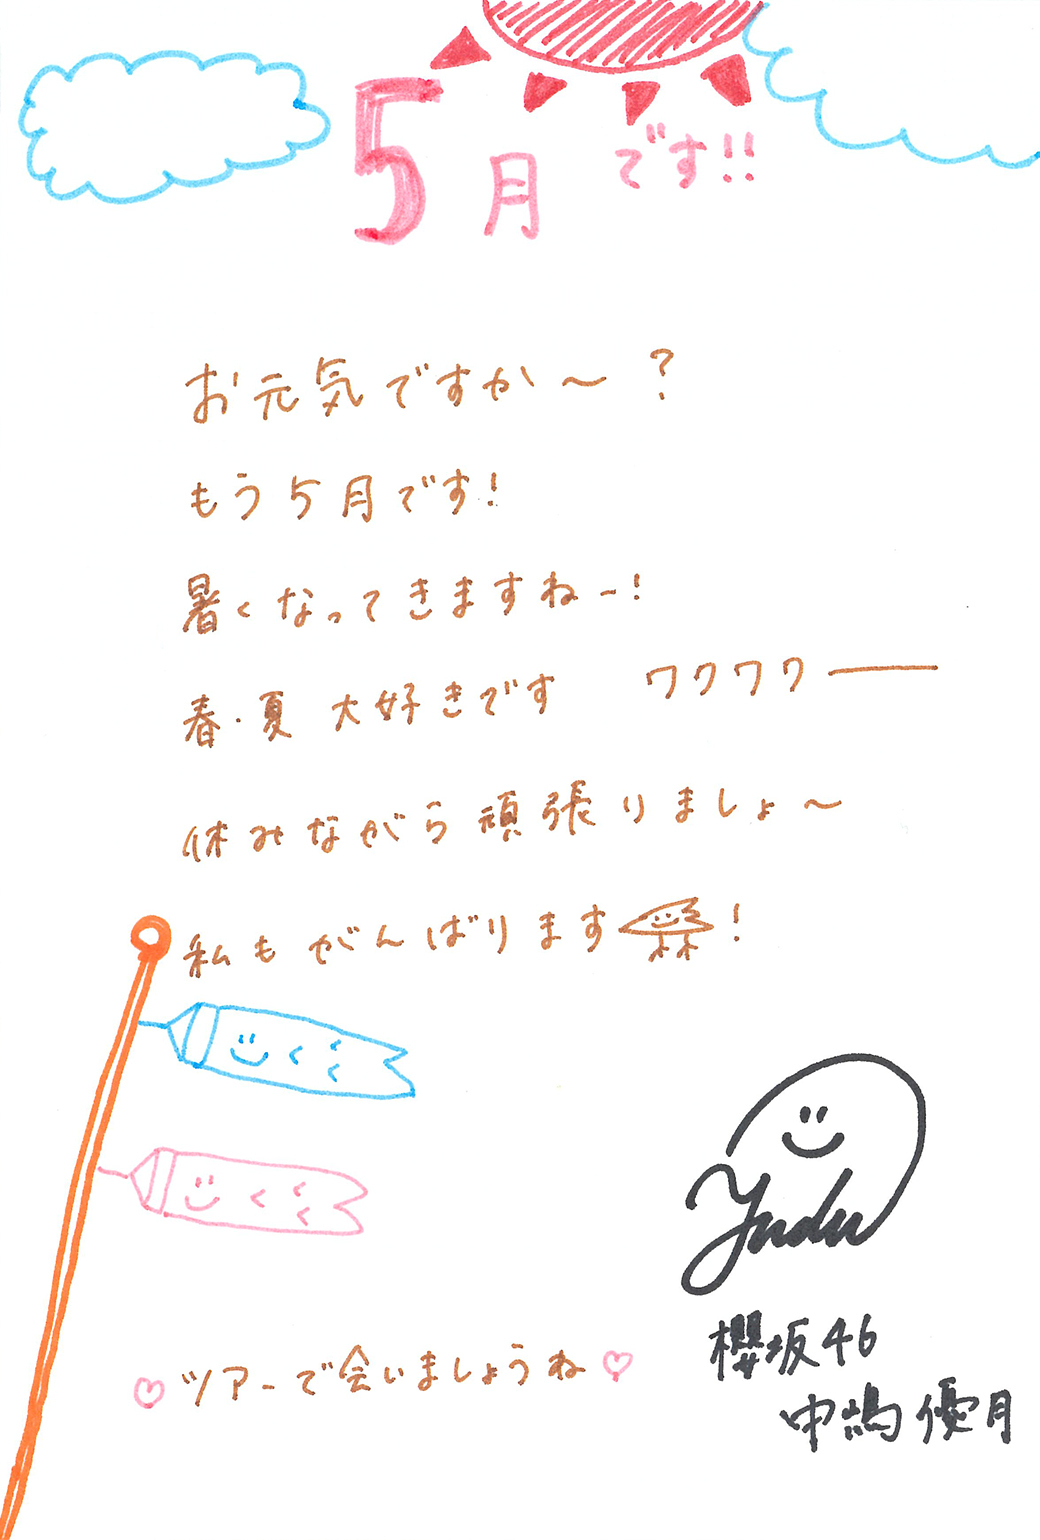 5月です!!
お元気ですか〜?
もう5月です!
暑くなってきますねー!
春・夏 大好きです ワクワクー
休みながら頑張りましょ〜
私もがんばります!
♡ツアーで会いましょうね♡
Yudu
櫻坂46
中嶋優月